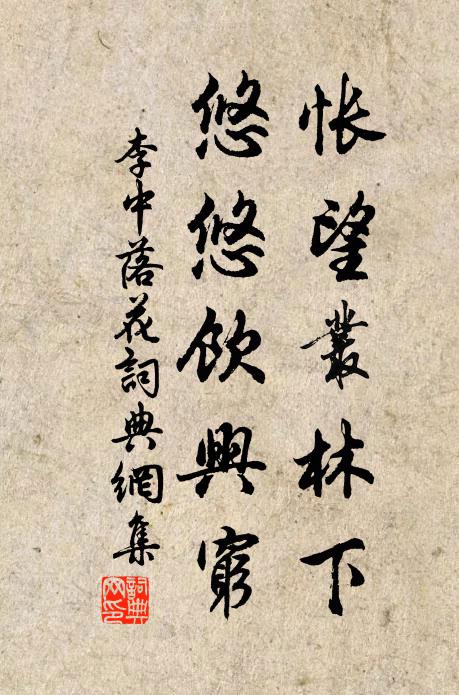 悵望叢林下
悠悠飲興窮
李中落花詞典網集
詞典
网印